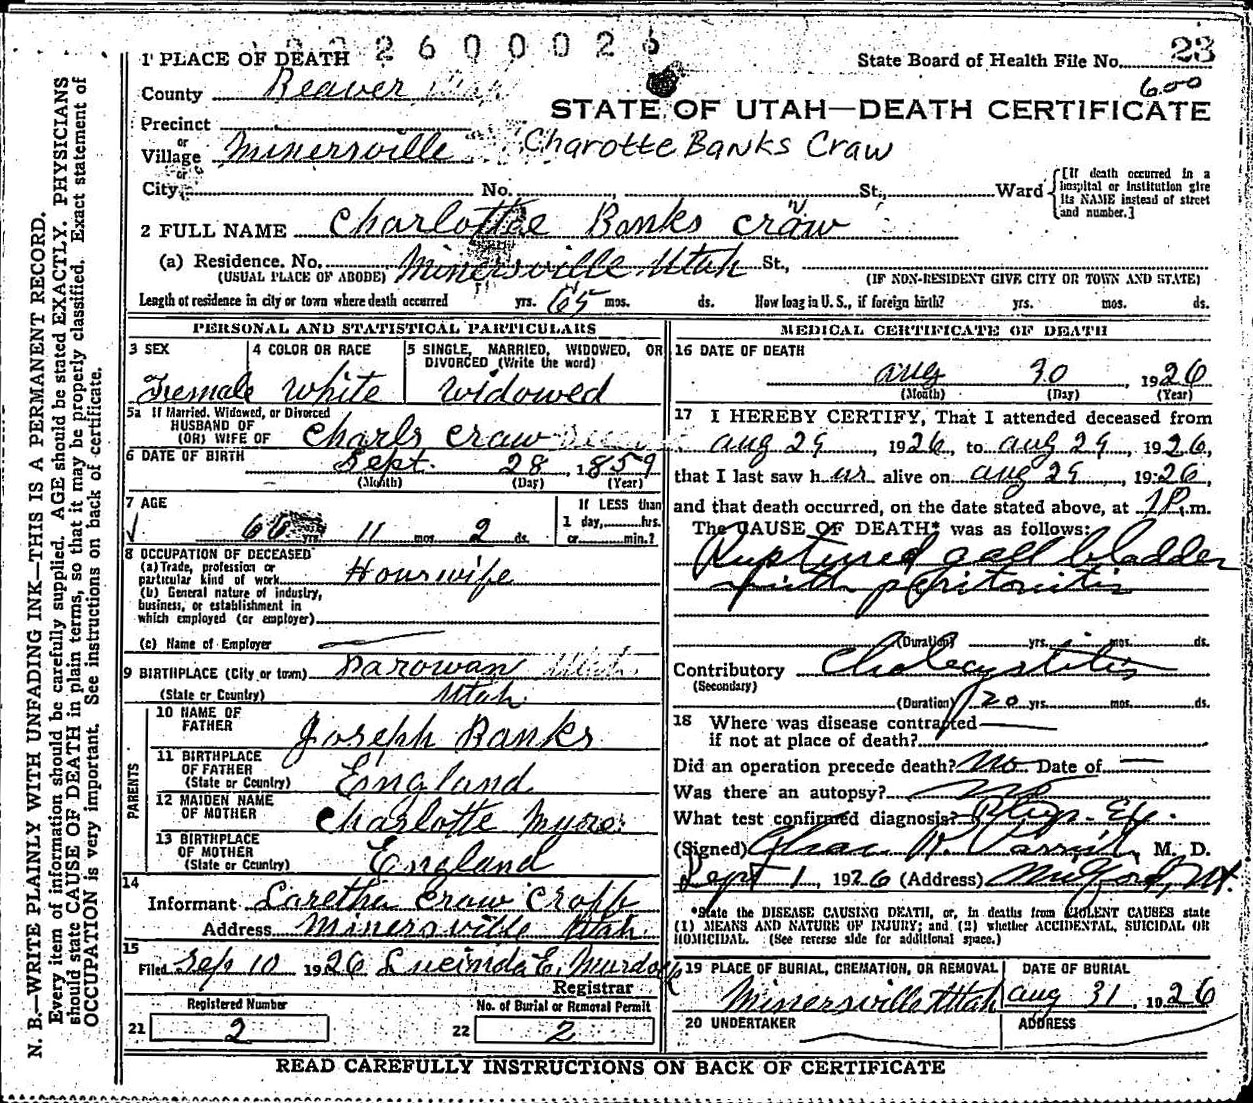 2600026
1 PLACE OF DEATH
State Board of Health File No. 23
County Beaver
600
STATE OF UTAH—DEATH CERTIFICATE
Precinct
or
Village Minersville
Charotte Banks Craw
or
City No. St., Ward
[If death occurred in a hospital or institution give its NAME instead of street and number.]
2 FULL NAME Charlottee Banks Craw
(a) Residence. No. Minersville Utah St.,
(USUAL PLACE OF ABODE) (IF NON-RESIDENT GIVE CITY OR TOWN AND STATE)
Length of residence in city or town where death occurred yrs. 65 mos. ds. How long in U. S., if foreign birth? yrs. mos. ds.
PERSONAL AND STATISTICAL PARTICULARS
3 SEX
Female
4 COLOR OR RACE
White
5 SINGLE, MARRIED, WIDOWED, OR
DIVORCED (Write the word)
Widowed
5a If Married, Widowed, or Divorced
HUSBAND OF
(OR) WIFE OF Charls Craw
6 DATE OF BIRTH Sept. 28, 1859
(Month) (Day) (Year)
7 AGE
66 yrs. 11 mos. 2 ds.
If LESS than
1 day, hrs.
or min.?
8 OCCUPATION OF DECEASED
(a) Trade, profession or
particular kind of work Houswife
(b) General nature of industry,
business, or establishment in
which employed (or employer)
(c) Name of Employer
9 BIRTHPLACE (City or town) Parowan Utah
(State or Country) Utah
PARENTS
10 NAME OF
FATHER Joseph Banks
11 BIRTHPLACE
OF FATHER
(State or Country) England
12 MAIDEN NAME
OF MOTHER Charlotte Myore
13 BIRTHPLACE
OF MOTHER
(State or Country) England
14
Informant Laretha Craw Cropp
Address Minersville Utah
15
Filed Sep 10 1926 Lucinda E. Murdock
Registrar
Registered Number
21 2
No. of Burial or Removal Permit
22 2
MEDICAL CERTIFICATE OF DEATH
16 DATE OF DEATH
Aug 30, 1926
(Month) (Day) (Year)
17 I HEREBY CERTIFY, That I attended deceased from
Aug 29, 1926, to Aug 29, 1926,
that I last saw h er alive on Aug 29, 1926,
and that death occurred, on the date stated above, at 1 P. m.
The CAUSE OF DEATH* was as follows:
Ruptured gall bladder
with peritonitis
(Duration) yrs. mos. ds.
Contributory Cholecystitis
(Secondary)
(Duration) 20 yrs. mos. ds.
18 Where was disease contracted
if not at place of death?
Did an operation precede death? No Date of
Was there an autopsy? No
What test confirmed diagnosis? Phys. Ex.
(Signed) Parrish, M. D.
Sept 1, 1926 (Address) Milford, Ut.
*State the DISEASE CAUSING DEATH, or, in deaths from VIOLENT CAUSES state
(1) MEANS AND NATURE OF INJURY; and (2) whether ACCIDENTAL, SUICIDAL OR
HOMICIDAL. (See reverse side for additional space.)
19 PLACE OF BURIAL, CREMATION, OR REMOVAL
Minersville Utah
DATE OF BURIAL
Aug 31, 1926
20 UNDERTAKER
ADDRESS
READ CAREFULLY INSTRUCTIONS ON BACK OF CERTIFICATE
N. B.—WRITE PLAINLY WITH UNFADING INK—THIS IS A PERMANENT RECORD.
Every item of information should be carefully supplied. AGE should be stated EXACTLY. PHYSICIANS
should state CAUSE OF DEATH in plain terms, so that it may be properly classified. Exact statement of
OCCUPATION is very important. See instructions on back of certificate.